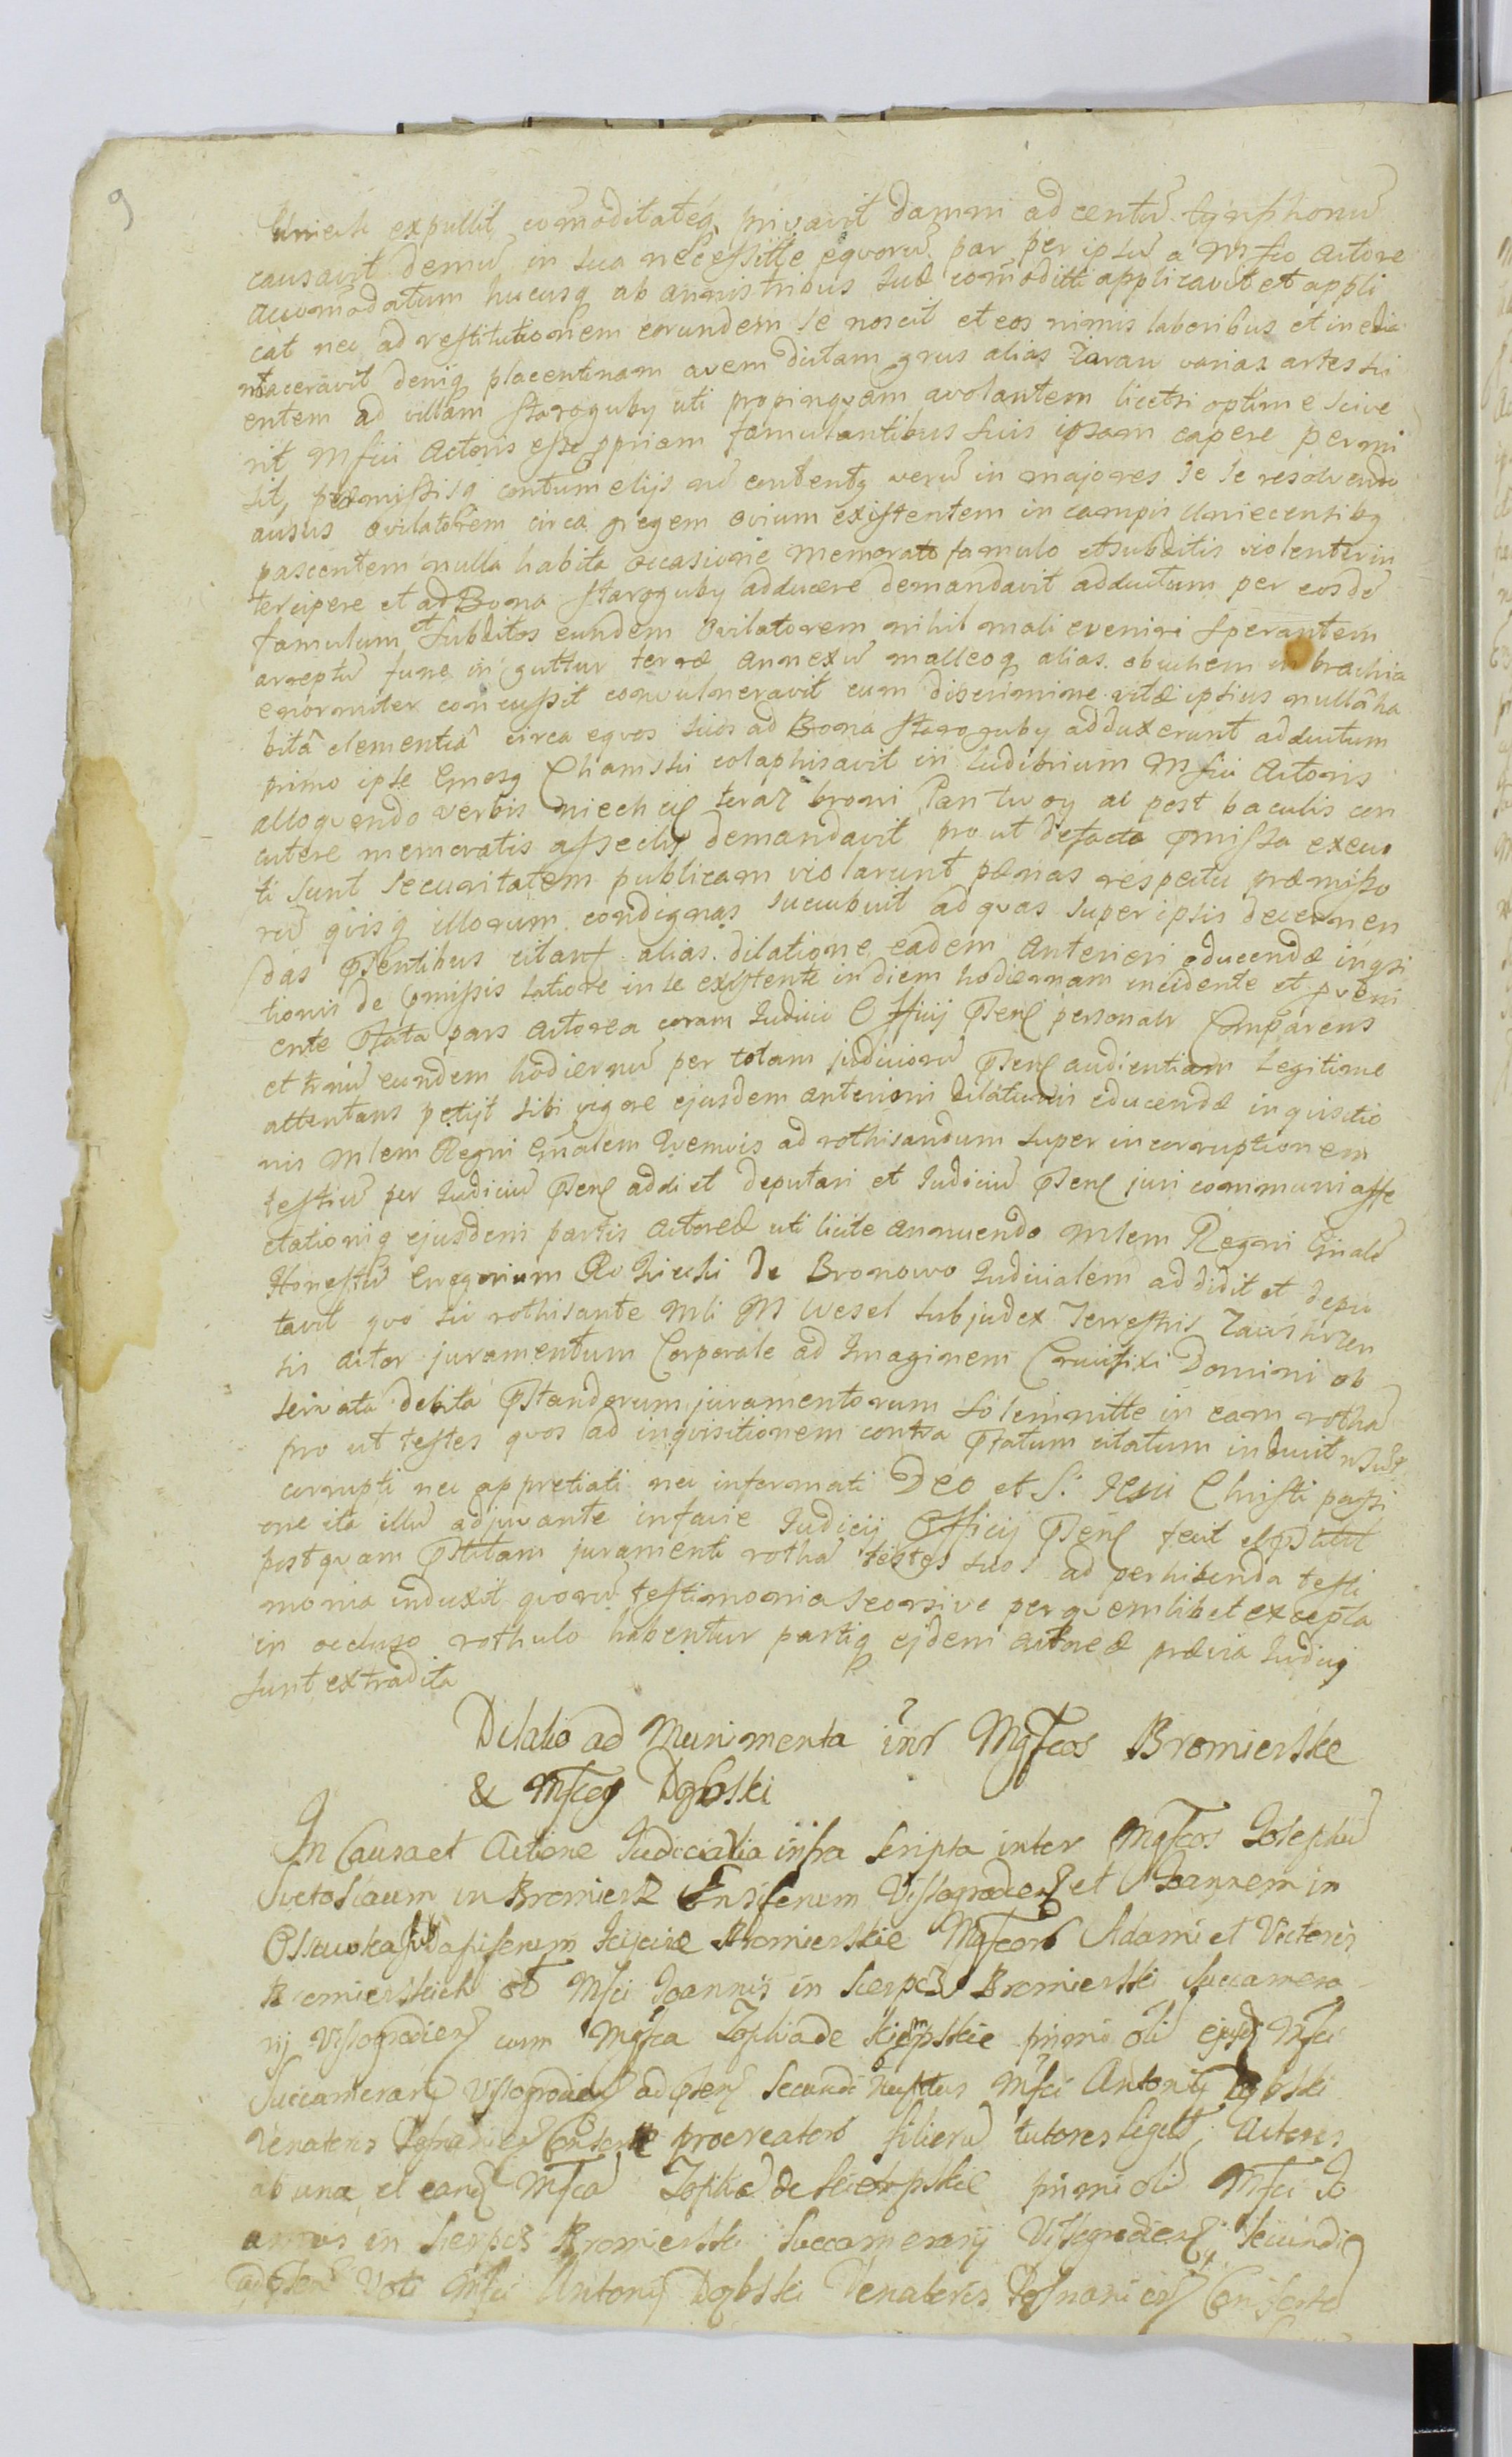 9
Uniecko expullit comoditateq privavit damni ad centũ tynphonũ
causavit demũ in sua necessitte eqvorũ par per ipsũ a Mfco Actore
accomodatum hucusq ab annis tribus suæ comoditti applicavit et appli
cat nec ad restitutionem eorundem se noscit et eos nimis laboribus et inedia
maceravit deniq placentinam avem dictam grus alias Zuraw varias artes sci
entem ad villam Staroguby uti propinqvam avolantem licet si optime scive
rit Mfici Actoris esse ppriam famulantibus suis ipsam capere permi
sit, præmissisq contumelijs nõ contentq verũ in majores se se resolvendo
ausus ovilatorem circa gregem ovium existentem in campis Uniecensibq
pascentem nulla habita occasione memorato famulo et subditis violenter in
tercipere et ad Bona Staroguby adducere demandavit adductum per eosdẽ
famulum et Subditos eundem Ovilatorem nihil mali eveniri sperantem
arreptũ fune in guttur tergæ annexũ malleoq alias obuchem in brachia
enormiter concussit convulneravit cum discrimine vitæ ipsius nullâ ha
bitâ clementiâ circa eqvos suos ad Bona Staroguby adduxerunt adductum
primo ipse Gnosq Chamski colaphisavit in ludibrium Mfici Actoris
alloqvendo verbis niech cię teraz broni Pan twoy ac post baculis con
cutere memoratis asseclis demandavit pro ut defacto pmissa execu
ti sunt securitatem publicam violarunt pænas respectu præmisso
rũ qvisq illorum condignas sucubuit ad qvas super ipsis decernen
das psentibus citant alias dilatione eadem Anteriori educendæ inqvisi
tionis de pmissis latiore in se existente in diem hodiernam incidente et pveni
ente Pfata pars Actorea coram Judicio Officij psens personalr Comparens
et tnũ eundem hodiernũ per totam judiciorũ psens audientiam legitime
attentans petijt sibi vigore ejusdem anterioris dilationis educendæ inqvisitio
nis Mlem Regni Gnalem qvemvis ad rothisandum super incorruptionem
testiũ per Judiciũ psens addi et deputari et Judiciũ psens juri communi affe
ctationiq ejusdem partis Actoreæ uti licite annuendo Mlem Regni Gnalẽ
Honestũ Gregorium de Bronowo Judicialem addidit et depu
tavit qvo sic rothisante Mli M Wesel Subjudex Terrestris Zawskrzen
sis Actor juramentum Corporale ad Imaginem Crucifixi Domini ob
servata debita pstandorum juramentorum solemnitte in eam rothã
pro ut testes qvos ad inqvisitionem contra pfatum citatum induxit nõ sunt
corrupti nec appretiati nec informati Deo et S: Jesu Christi passi
one ita illũ adjuvante in facie Judicij Officij psens fecit et pstitit
post qvam pstitam juramenti rothã testes suos ad perhibenda testi
monia induxit qvorũ testimonia seorsive per qvemlibet excepta
in occluso rothulo habentur partiq ejdem Actoreæ prævia Judicij
sunt extradita
Dilatio ad Munimenta intr Mgfcos Bromierskie
& Mfcos Dąbski
In Causa et Actione Judicialia infra scripta inter Mgfcos Josephũ
Suetoslaum in Bromierz Ensiferum Vissogrodiens et Joannem in
Ossowka Subdapiferum Bromierskie Mgfcorũ Adami et Victoris
Bromierskich oĩ Mfci Joannis in Sierpcz Bromierski Succamera
rij Vissogrodiens cum Mgfca Zophia de Sierpskie primo olĩ ejusd Mfci
Succamerarij Vissogrodiens ad psens secundi Mfci Antonij Dąbski
Venatoris Posnaniens Consorte procreatorũ filiorũ tutores Actores
ab una et eand Mfcã Zophiã de Sierpskie primi olĩ Mfci Jo
annis in Sierpcz Bromierski Succamerarij Vissogrodiens secundi
ad psens Voti Mfci Antonij Dąbski Venatoris Posnaniens Consortẽ